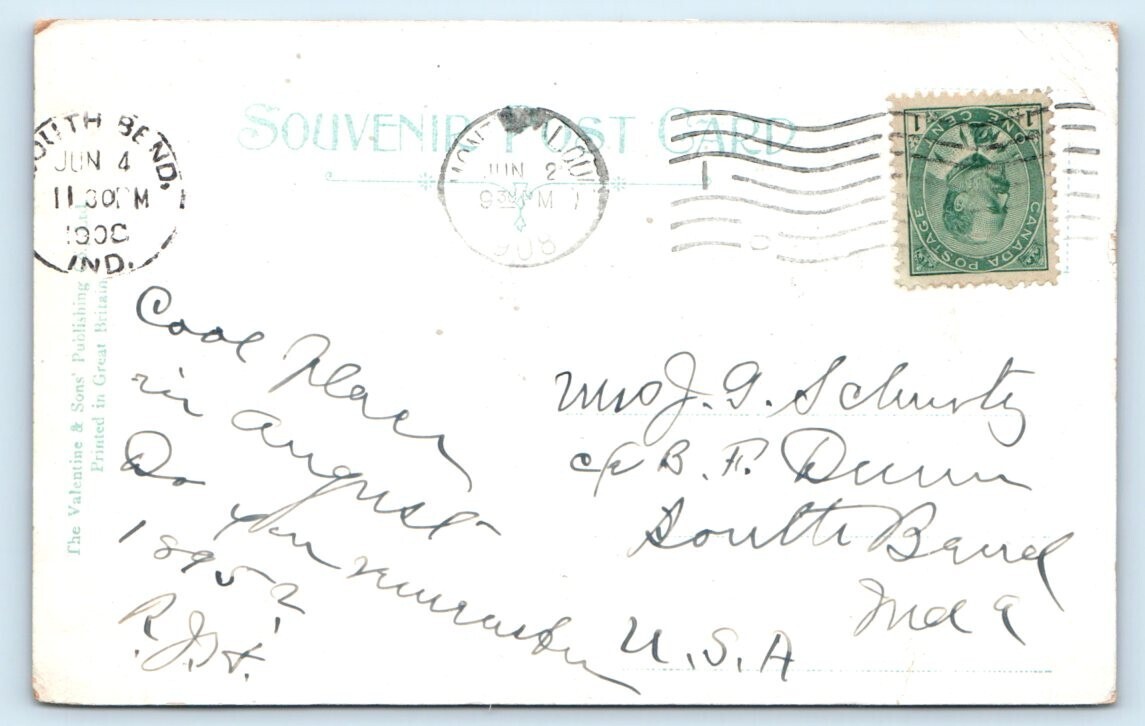 SOUVENIR POST CARD
SOUTH BEND,
JUN 4
11 30 PM
1908
IND.
JUN 2
9 30 M
908
ONE CENT
1 1
CANADA POSTAGE
The Valentine & Sons' Publishing
Printed in Great Britain
Cool place
in august
Do you remember
1895?
R.J.H.
Mrs J. G. Schurtz
c/o B. F. Dunn
South Bend
Inda
U.S.A